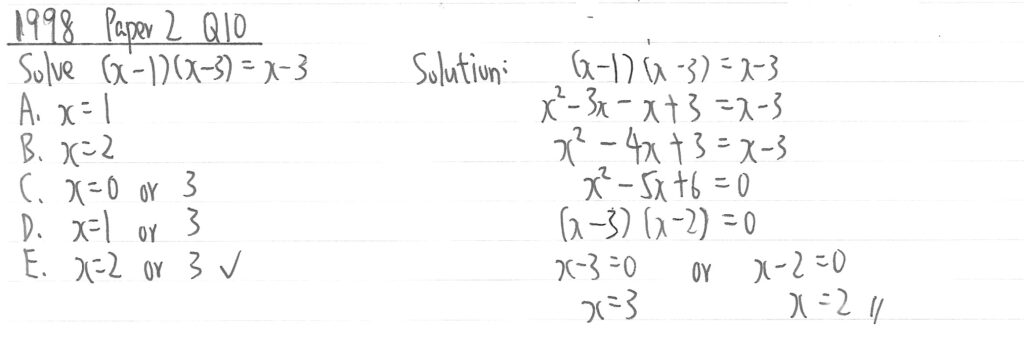 1998 Paper 2 Q10
Solve (x-1)(x-3) = x-3
A. x=1
B. x=2
C. x=0 or 3
D. x=1 or 3
E. x=2 or 3 ✓
Solution: (x-1)(x-3) = x-3
x²-3x-x+3 = x-3
x²-4x+3 = x-3
x²-5x+6 = 0
(x-3)(x-2) = 0
x-3=0 or x-2=0
x=3 x=2 //